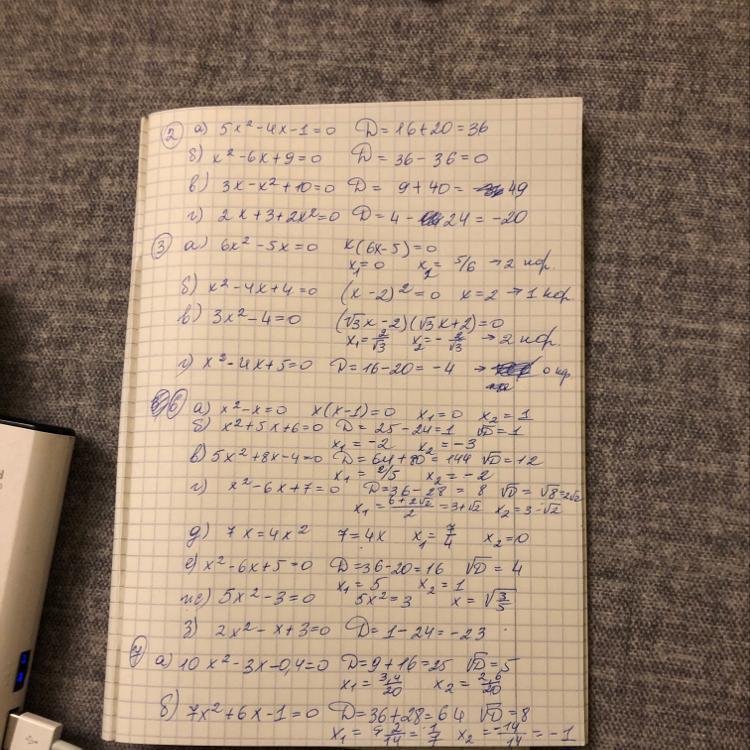 2 а) 5x² - 4x - 1 = 0 D = 16 + 20 = 36
б) x² - 6x + 9 = 0 D = 36 - 36 = 0
в) 3x - x² + 10 = 0 D = 9 + 40 = 49
г) 2x + 3 + 2x² = 0 D = 4 - 24 = -20
3 а) 6x² - 5x = 0 x(6x - 5) = 0
x₁ = 0 x₂ = 5/6 → 2 кор.
б) x² - 4x + 4 = 0 (x - 2)² = 0 x = 2 → 1 кор.
в) 3x² - 4 = 0 (√3x - 2)(√3x + 2) = 0
x₁ = 2/√3 x₂ = -2/√3 → 2 кор.
г) x² - 4x + 5 = 0 D = 16 - 20 = -4 → 0 кор.
6 а) x² - x = 0 x(x - 1) = 0 x₁ = 0 x₂ = 1
б) x² + 5x + 6 = 0 D = 25 - 24 = 1 √D = 1
x₁ = -2 x₂ = -3
в) 5x² + 8x - 4 = 0 D = 64 + 80 = 144 √D = 12
x₁ = 2/5 x₂ = -2
г) x² - 6x + 7 = 0 D = 36 - 28 = 8 √D = √8 = 2√2
x₁ = (6 + 2√2)/2 = 3 + √2 x₂ = 3 - √2
д) 7x = 4x² 7 = 4x x₁ = 7/4 x₂ = 0
е) x² - 6x + 5 = 0 D = 36 - 20 = 16 √D = 4
x₁ = 5 x₂ = 1
ж) 5x² - 3 = 0 5x² = 3 x = √(3/5)
з) 2x² - x + 3 = 0 D = 1 - 24 = -23
7 а) 10x² - 3x - 0,4 = 0 D = 9 + 16 = 25 √D = 5
x₁ = 3,4/20 x₂ = 2,6/20
б) 7x² + 6x - 1 = 0 D = 36 + 28 = 64 √D = 8
x₁ = 2/14 = 1/7 x₂ = -14/14 = -1